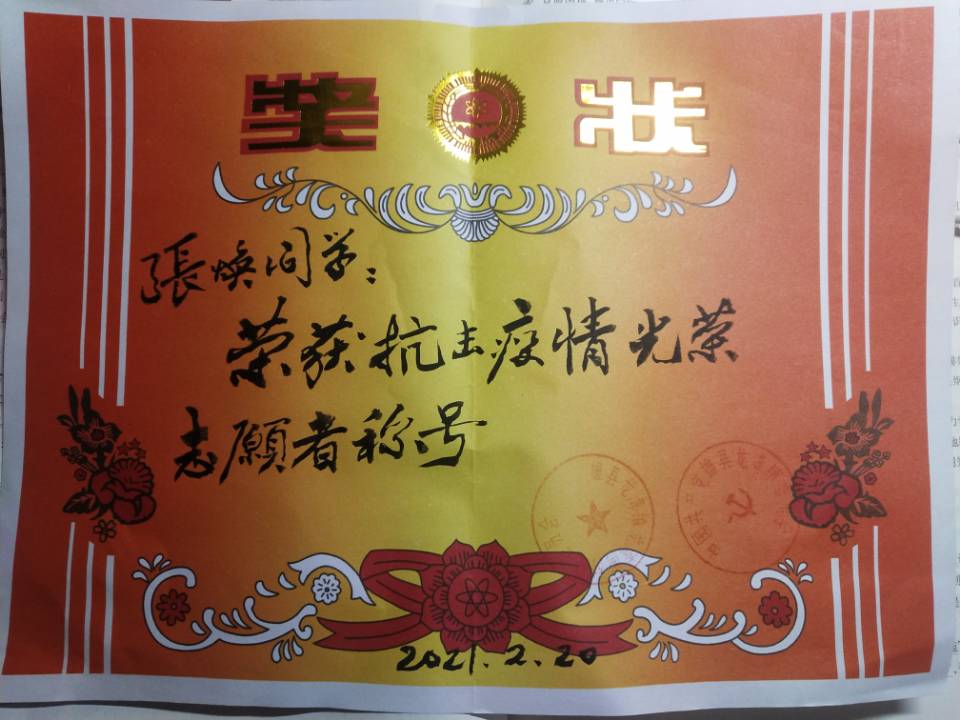 奖状
張焕同学：
荣获抗击疫情光荣
志願者称号
2021.2.20